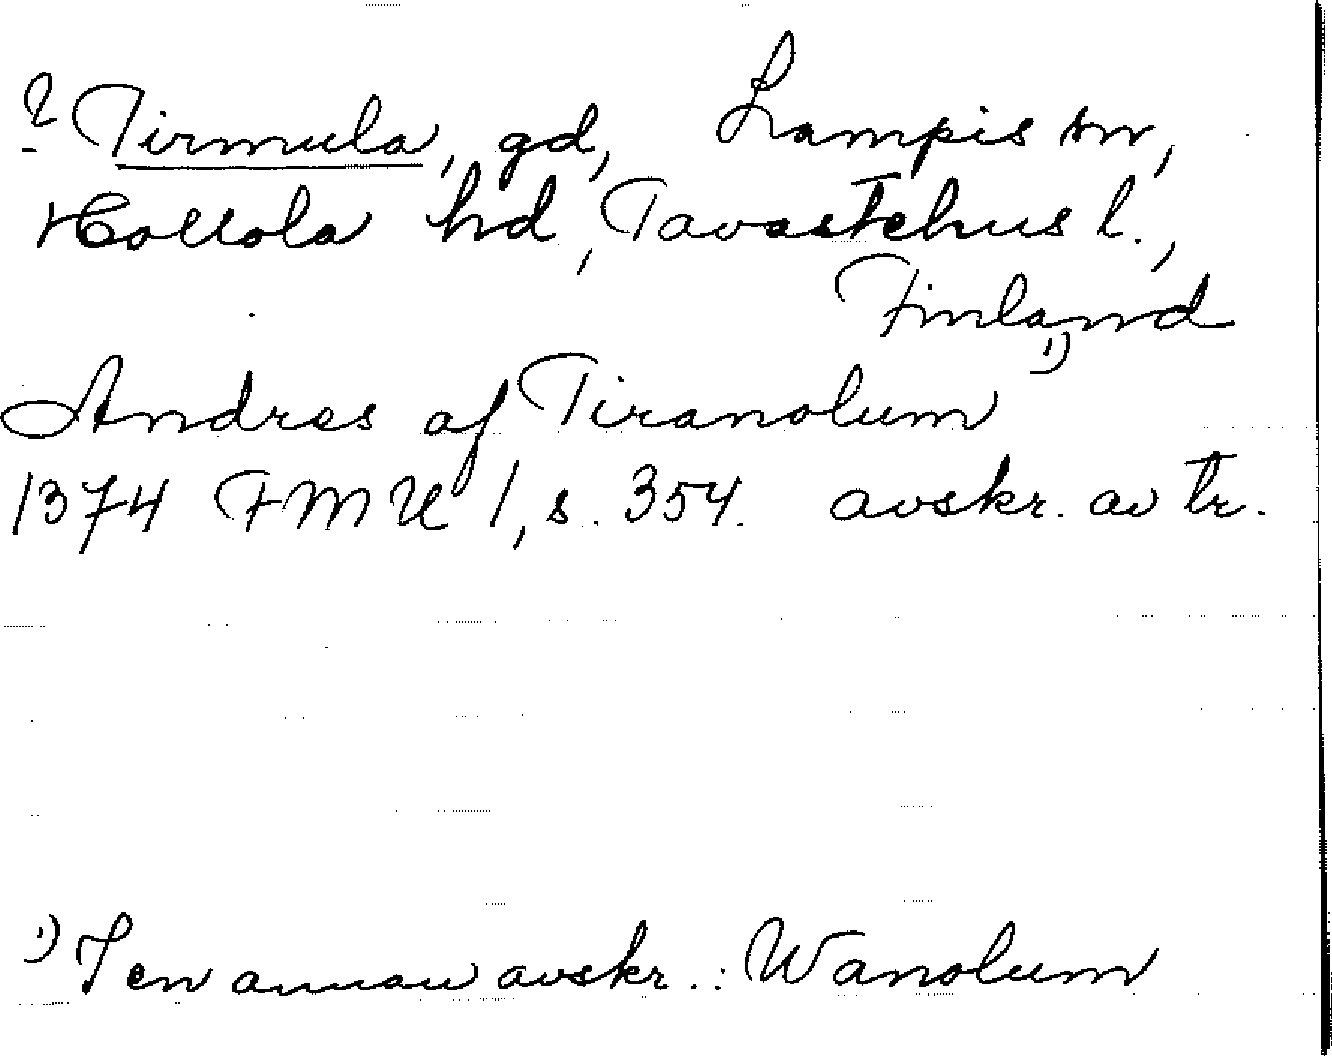 ? Tirmula, gd, Lampis sn,
Hollola hd, Tavastehus l.,
Finland
Andres af Tiranolum 1)
1374 FMU 1, s. 354. avskr. av tr.
1) I en annan avskr.: Wanolum